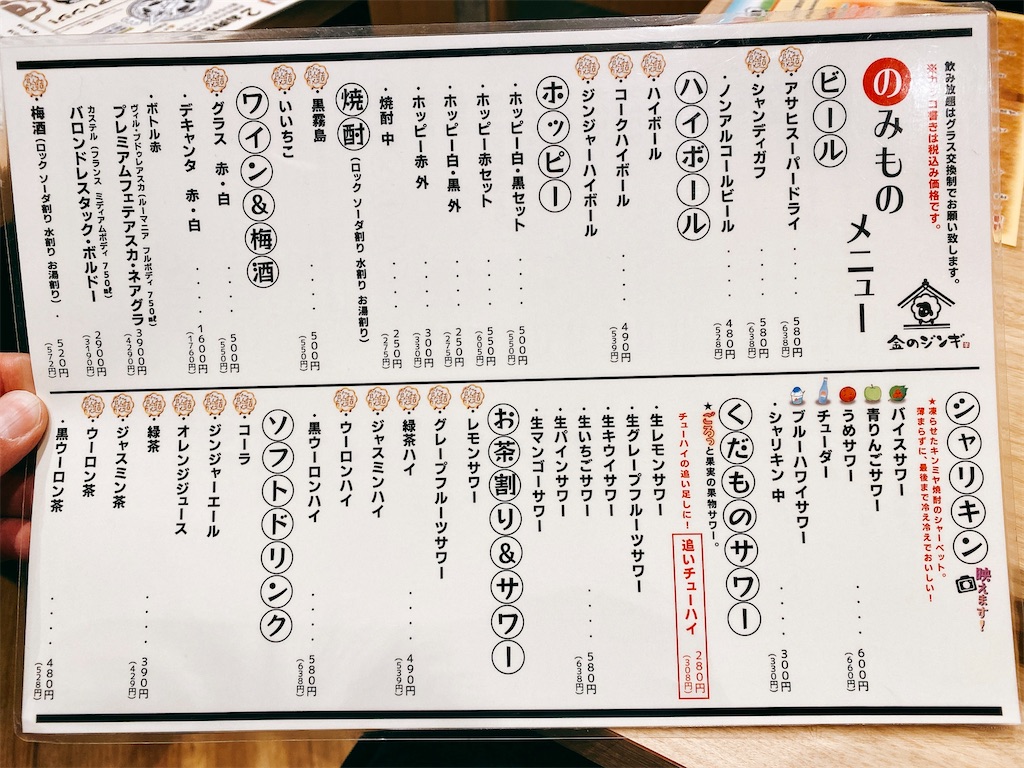 飲み放題はグラス交換制でお願い致します。
※カッコ書きは税込み価格です。
のみもの
メニュー
金のジンギ
ビール
・アサヒスーパードライ
580円
(638円)
・シャンディガフ
580円
(638円)
・ノンアルコールビール
480円
(528円)
ハイボール
・ハイボール
・コークハイボール
490円
(539円)
・ジンジャーハイボール
ホッピー
・ホッピー白・黒セット
500円
(550円)
・ホッピー赤セット
550円
(605円)
・ホッピー白・黒 外
250円
(275円)
・ホッピー赤 外
300円
(330円)
・焼酎 中
250円
(275円)
焼酎
(ロック ソーダ割り 水割り お湯割り)
・黒霧島
500円
(550円)
・いいちこ
ワイン&梅酒
・グラス 赤・白
500円
(550円)
・デキャンタ 赤・白
1600円
(1760円)
・ボトル赤
ヴィル・ブドゥレアスカ(ルーマニア フルボディ 750㎖)
プレミアムフェテアスカ・ネアグラ
3900円
(4290円)
カステル(フランス ミディアムボディ 750㎖)
バロンドレスタック・ボルドー
2900円
(3190円)
・梅酒(ロック ソーダ割り 水割り お湯割り)
520円
(572円)
シャリキン
映えます!
★凍らせたキンミヤ焼酎のシャーベット。
薄まらずに、最後まで冷え冷えでおいしい!
バイスサワー
青りんごサワー
うめサワー
600円
(660円)
チューダー
ブルーハワイサワー
・シャリキン 中
300円
(330円)
くだものサワー
★ごろっと果実の果物サワー。
チューハイの追い足しに!
追いチューハイ
280円
(308円)
・生レモンサワー
・生グレープフルーツサワー
・生キウイサワー
・生いちごサワー
580円
(638円)
・生パインサワー
・生マンゴーサワー
お茶割り&サワー
・レモンサワー
・グレープフルーツサワー
・緑茶ハイ
490円
(539円)
・ジャスミンハイ
・ウーロンハイ
・黒ウーロンハイ
580円
(638円)
ソフトドリンク
・コーラ
・ジンジャーエール
・オレンジジュース
・緑茶
390円
(429円)
・ジャスミン茶
・ウーロン茶
・黒ウーロン茶
480円
(528円)